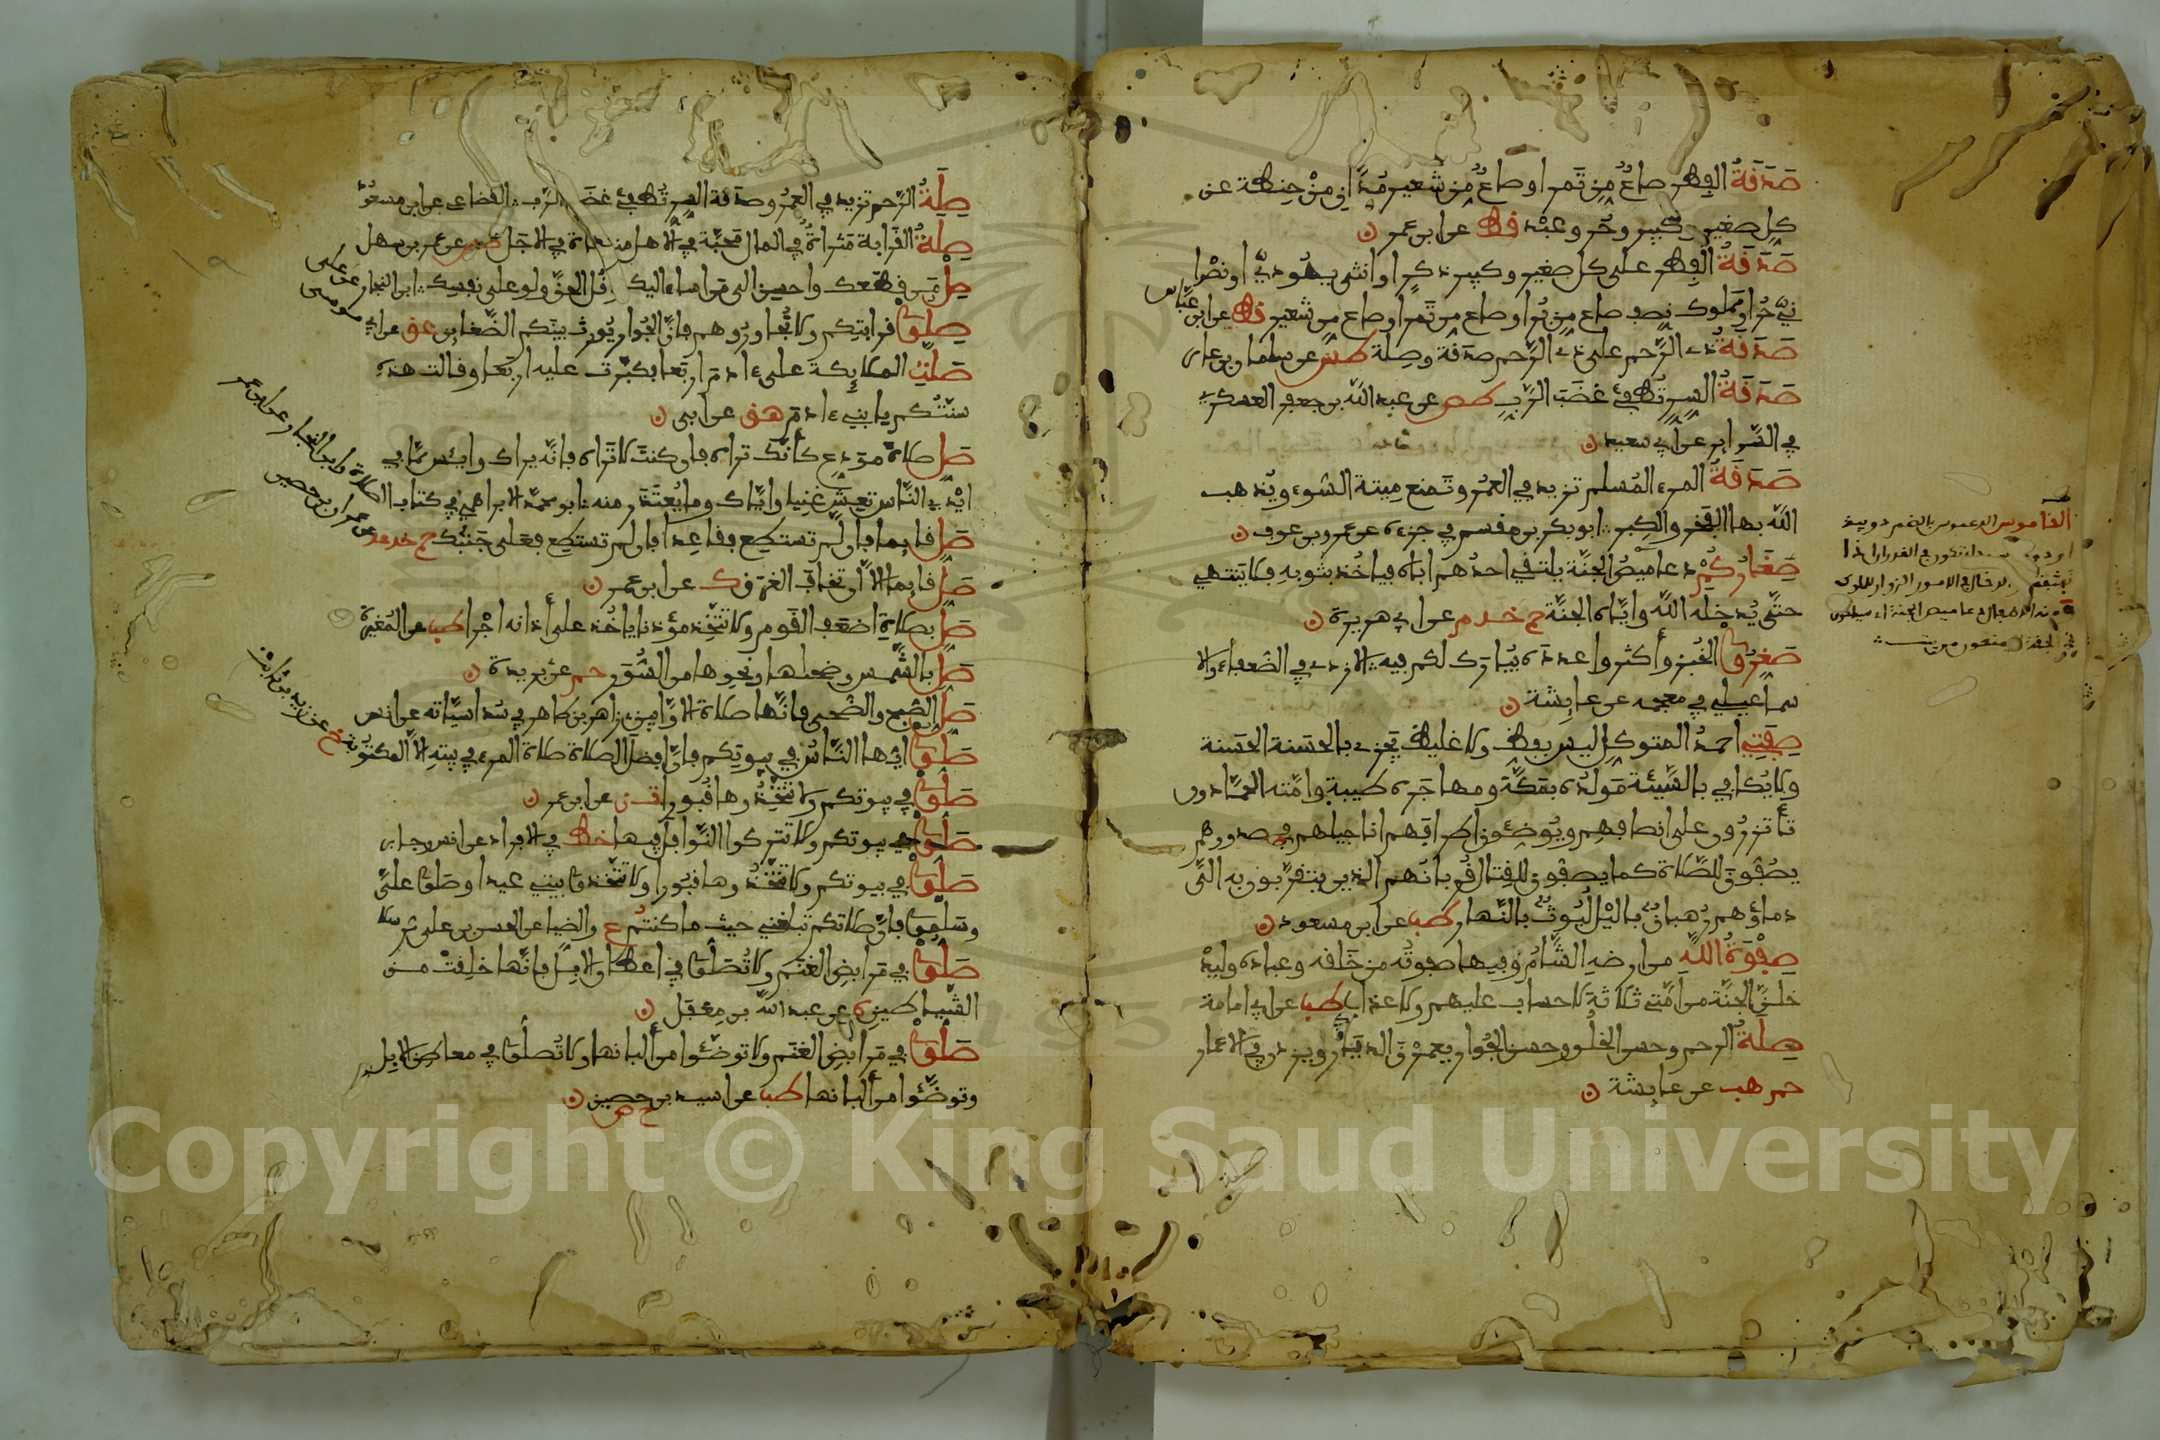 صَدَقَةُ الفِطْرِ صاعٌ مِن تَمر او صاعٌ مِن شَعير مُدَّانِ مِنْ حِنطة عن
كل صغير وكبير وحُر وعبْد قط عن ابن عمر ن
صَدَقَةُ الفِطْرِ على كل صغير وكبير ذكر او انثى يهُوديّ او نصْرا
نيّ حُرّ او مَملوك نِصف صاع مِن بُر او صاع مِن تَمر او صاع مِن شَعير قط عن ابن عبّاس
صَدَقَةُ ذي الرَّحم على ذي الرَّحم صدَقة وصِلة طس عن سلمان بن عامر
صَدَقَةُ السِرِّ تُطْفئ غضَبَ الرَّبِ طص عن عبد الله بن جعفر العسكري
في السَّراير عن ابي سعيد ن
صَدَقَةُ المرء المُسلم تزيد في العمُر وتَمنع مِيتة السُّوء ويُذهب
الله بها الفخر والكِبر ابو بكر بن مقسم في جزءه عن عمرو بن عوف ن
صِغَارُكُمْ دعاميصُ الجنّة يلتقي احدُهم اباه فياخُذ بثوبِهِ فلا يَنتهي
حتّى يُدخله الله وايّاه الجنّة حم خد م عن ابي هريرة ن
صَغِّرُوا الخُبز وأكثروا عددَه يُبارَك لكم فيه الازدي في الضعفاء والا
سماعيلي في معجمه عن عايشة ن
صِفَتِي احمدُ المتوكلُ ليس بفظٍ ولا غليظ يَجزي بالحسَنة الحسَنة
ولا يُكافي بالسَّيئة مَولدُه بمَكّة ومهاجَره طيبة وامّته الحمّادون
يأتزرُون على انصافِهم ويُوضِئون اطرافَهم اناجيلهم في صدورهم
يصُفّون للصَّلاة كما يصفّون للقِتال قُربانُهم الذي يتقرّبون به الىَّ
دماؤهم رُهبانٌ باليْل لُيُوثٌ بالنَّهار طب عن ابن مسعود ن
صِفْوَةُ اللهِ من ارضهِ الشَّامُ وفيها صفوتُه من خَلقه وعباده وليدْ
خلنَّ الجنَّة من امَّتي ثلاثة لا حساب عليهم ولا عذاب طب عن ابي امامة
صِلَةُ الرحم وحسن الخلُو وحسن الجِوار يعمرْن الديَارَ ويزدن في الاعمار
حم هب عن عايشة ن
القاموس الدعموص بالضم دويبة
صِلَةُ الرَّحم تزيد في العمُر وصدَقة السِّر تُطفئ غضَبَ الرَّب القضاعي عن ابن مسعود
صِلَةُ القَرابة مَثراةٌ في المال مَحبَّة في الاهل منسَاة في الاجَل طس عن عمرو بن سهل
صِلْ مَن قطَعك واحسِن الى مَن اساء اليك وقُل الحقَّ ولو على نفسِك ابن النجار عن علي
صِلُوا قرابتكم ولا تُجاوِرُوهم فانَّ الجُوار يُورث بينكم الضَّغاين عق عن ابي
موسى
صَلَّت الملايكة على ءادمَ اربَعا فكبَّرت عليه اربَعا وقالت هذه
سنّتُكم يا بني ءادمَ هق عن ابي ن
صَلِّ صلاة مودع كأنَّك تراه فان كنتَ لا تَراه فانّه يراك وايئس ممّا في
ايْدي النَّاس تعِشْ غنيا وايّاك وما يُعتَذَر منه ابو محمّد الابراهيمي في كتاب الصلاة وابن النجار عن ابن عمر
صَلِّ قايما فان لَم تستطِع فقاعِدا فان لم تستطِع فعَلى جَنْبٍك حم خ عد عن عمران بن حصين
صَلِّ قايما الاّ أن تخافَ الغرَق ك عن ابن عمر ن
صَلِّ بصلاةِ اضعَفِ القَوم ولا تتّخِذ مؤذنا ياخُذ على أذانه اجْرا طب عن المُغيرة
صَلِّ بالشَّمس وضحاها ونَحوِها من السُّوَر حم عن بريدة ن
صَلِّ الصُّبح والضُّحى فانّها صلاة الاوَّابين زاهر بن طاهر في سُداسيّاته عن انس
صَلُّوا ايّها النَّاسُ في بيوتِكم فانَّ افضلَ الصلاة صلاة المرء في بيتهِ الاَّ المكتوبة خ عن زيد بن ثابت
صَلُّوا في بيوتكم ولا تتّخِذُوها قُبورا ت ن عن ابن عمر ن
صَلُّوا في بيوتكم ولا تتركوا النَّوافلَ فيها قط في الافراد عن انس وجابر
صَلُّوا في بيوتكم ولا تتّخِذُوها قبُورا ولا تتّخِذوا بيتي عيدا وصَلوا علىَّ
وسَلّموا فانَّ صلاتكم تبلغني حيث ما كنتُم ع والضيا عن الحسن بن على
صَلُّوا في مَرابِض الغنَم ولا تُصَلُّوا في اعطان الابِل فانّها خلِقتْ من
الشَّياطين ه عن عبد الله بن مغفل ن
صَلُّوا في مَرابِض الغنَم ولا توضّئوا من ألبانها ولا تُصلُّوا في معاطن الابِل
وتوضَّئوا من ألبانها طب عن اسيد بن حضير ن